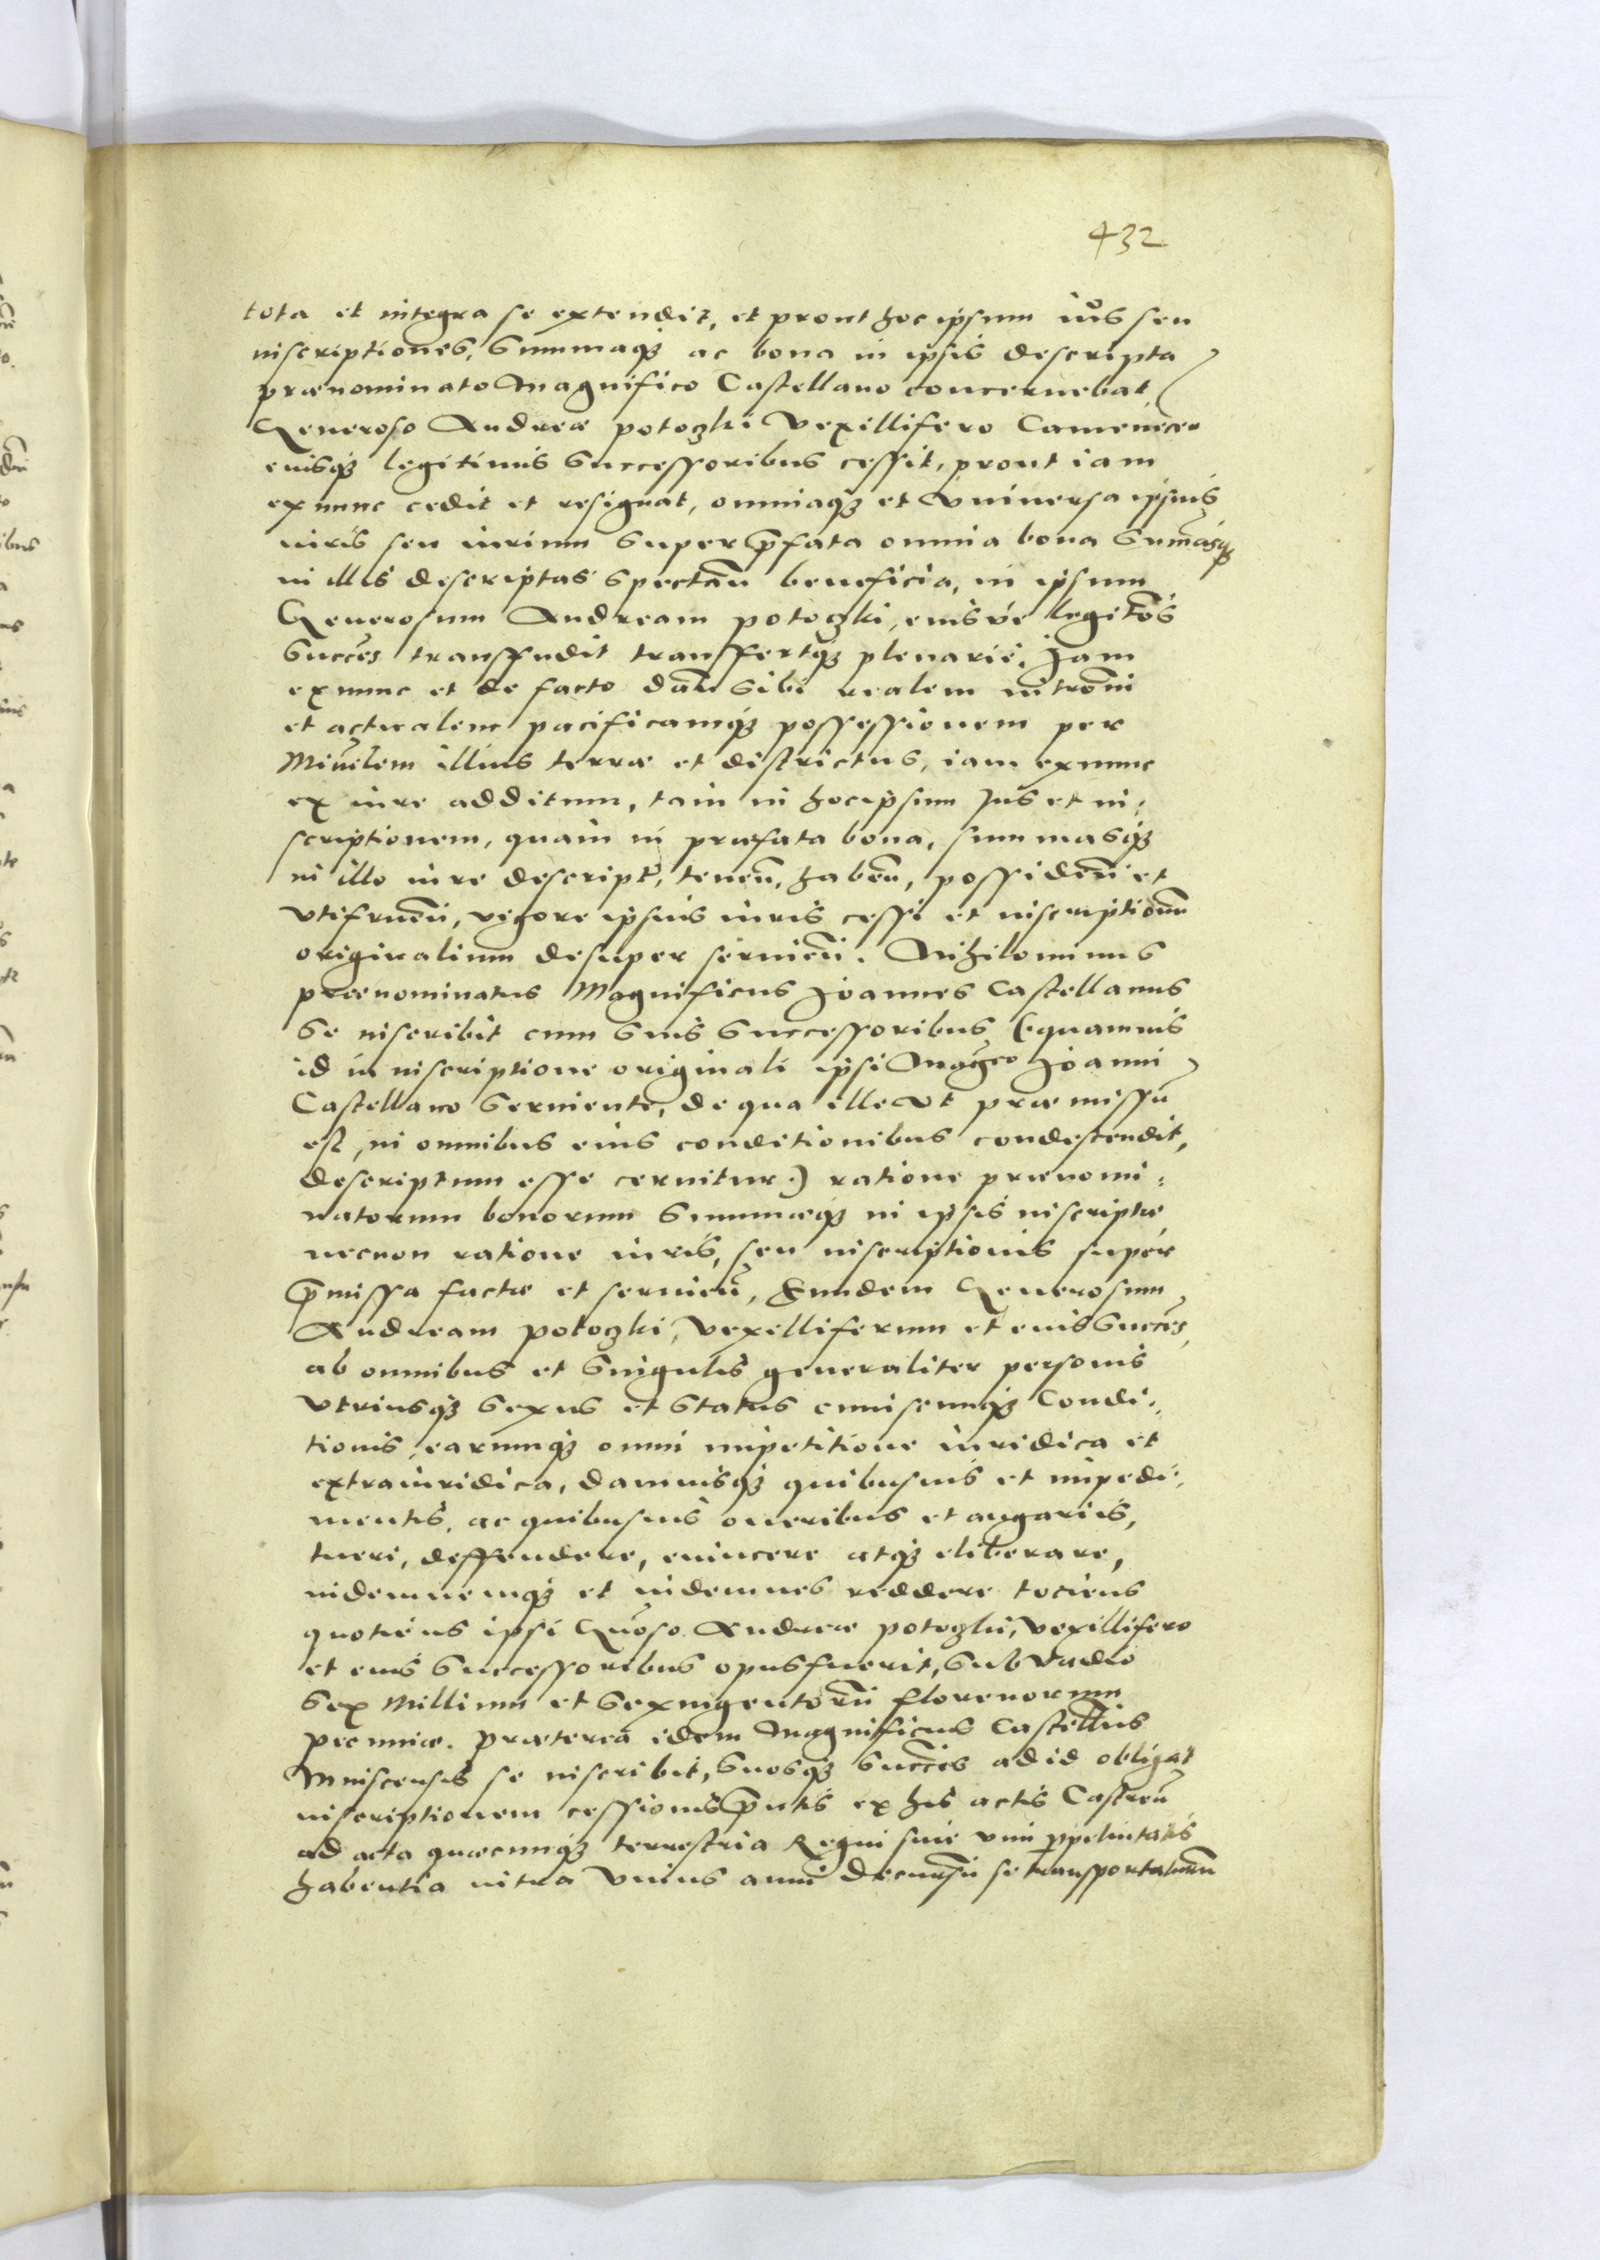 432
tota et integra se extendit, et prout hoc ipsum ius seu
inscriptiones, Summaq3 ac bona in ipsis descripta
prænominato Magnifico Castellano concernebat,
Generoso Andreæ potoczki Vexillifero Camenecen
eiusq3 legitimis Successoribus cessit, prout iam
ex nunc cedit et resignat, omniaq3 et Vniuersa ipsius
iuris seu iurium Super p̄fata omnia bona Sum̄asq3
in illis descriptas Spectan̄ beneficia, in ipsum
Generosum Andream potoczki, eiusve legit̄os
Succes̄ transfudit transfertq3 plenarie, Jam
ex nunc et de facto dan̄ Sibi realem intro̅m
et actualem pacificamq3 possessionem per
Min̄lem illius terræ et districtus, iam ex nunc
ex iure additum, tam in hoc ipsum Jus et in:
scriptionem, quam in præfata bona, summasq3
in illo iure descript̄, tenen̄, haben̄, possiden̄ et
Vtifruen̄, vigore ipsius iuris cessi et inscriptionum
originalium desuper seruien̄. Nihilominus
prænominatus Magnificus Joannes Castellanus
Se inscribit cum Suis Successoribus (quamuis
id in inscriptione originali ipsi Mag̅co Joanni
Castellano Seruiente, de qua ille Vt præmissū
est, in omnibus eius conditionibus condescendit,
descriptum esse cernitur.) ratione prænomi:
natorum bonorum Summæq3 in ipsis inscriptæ
necnon ratione iuris, seu inscriptionis super
p̄missa factæ et seruien̄, Eundem Generosum
Andream potoczki, Vexilliferum et eius Succes̄,
ab omnibus et Singulis generaliter personis
Vtriusq3 Sexus et Status cuiuscunq3 Condi:
tionis, earumq3 omni impetitione iuridica et
extraiuridica, damnisq3 quibusuis et impedi:
mentis, ac quibusuis oneribus et angariis,
tueri, deffendere, euincere atq3 eliberare,
indemnemq3 et indemnes reddere tociens
quotiens ipsi Gn̄oso Andreæ potoczki, Vexillifero
et eius Successoribus opus fuerit, Sub Vadio
Sex Millium et Sexingentorū florenorum
pecuniæ. Præterea idem Magnificus Castell̄us
se inscribit, Suosq3 Succes̄ ad id obligat
inscriptionem cessionis p̄ntis ex his actis Castren̄
ad acta quæcunq3 terrestria Regni sui vim pp̄etuitatis
habentia intra Vnius anni decursū se transportaturū